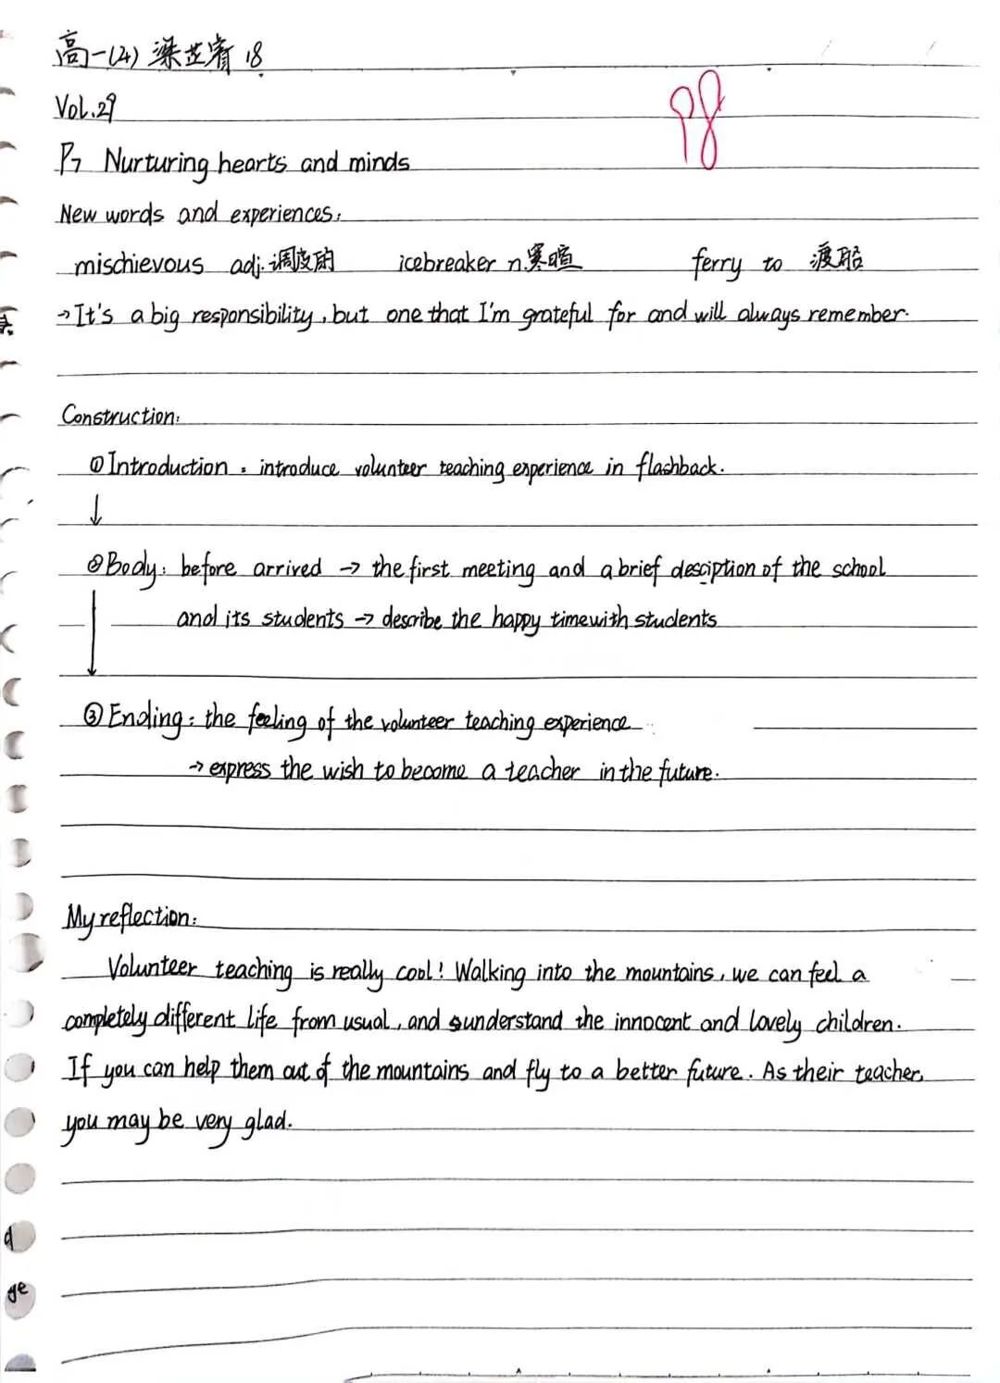 高一(4) 梁芷睿 18
Vol.29
98
P7 Nurturing hearts and minds
New words and experiences:
mischievous adj.调皮的 icebreaker n.寒暄 ferry to 渡船
→It's a big responsibility, but one that I'm grateful for and will always remember.
Construction:
①Introduction: introduce volunteer teaching experience in flashback.
↓
②Body: before arrived → the first meeting and a brief desciption of the school
and its students → describe the happy time with students
③Ending: the feeling of the volunteer teaching experience
→ express the wish to become a teacher in the future.
My reflection:
Volunteer teaching is really cool! Walking into the mountains, we can feel a
completely different life from usual, and understand the innocent and lovely children.
If you can help them out of the mountains and fly to a better future. As their teacher,
you may be very glad.
d
ge